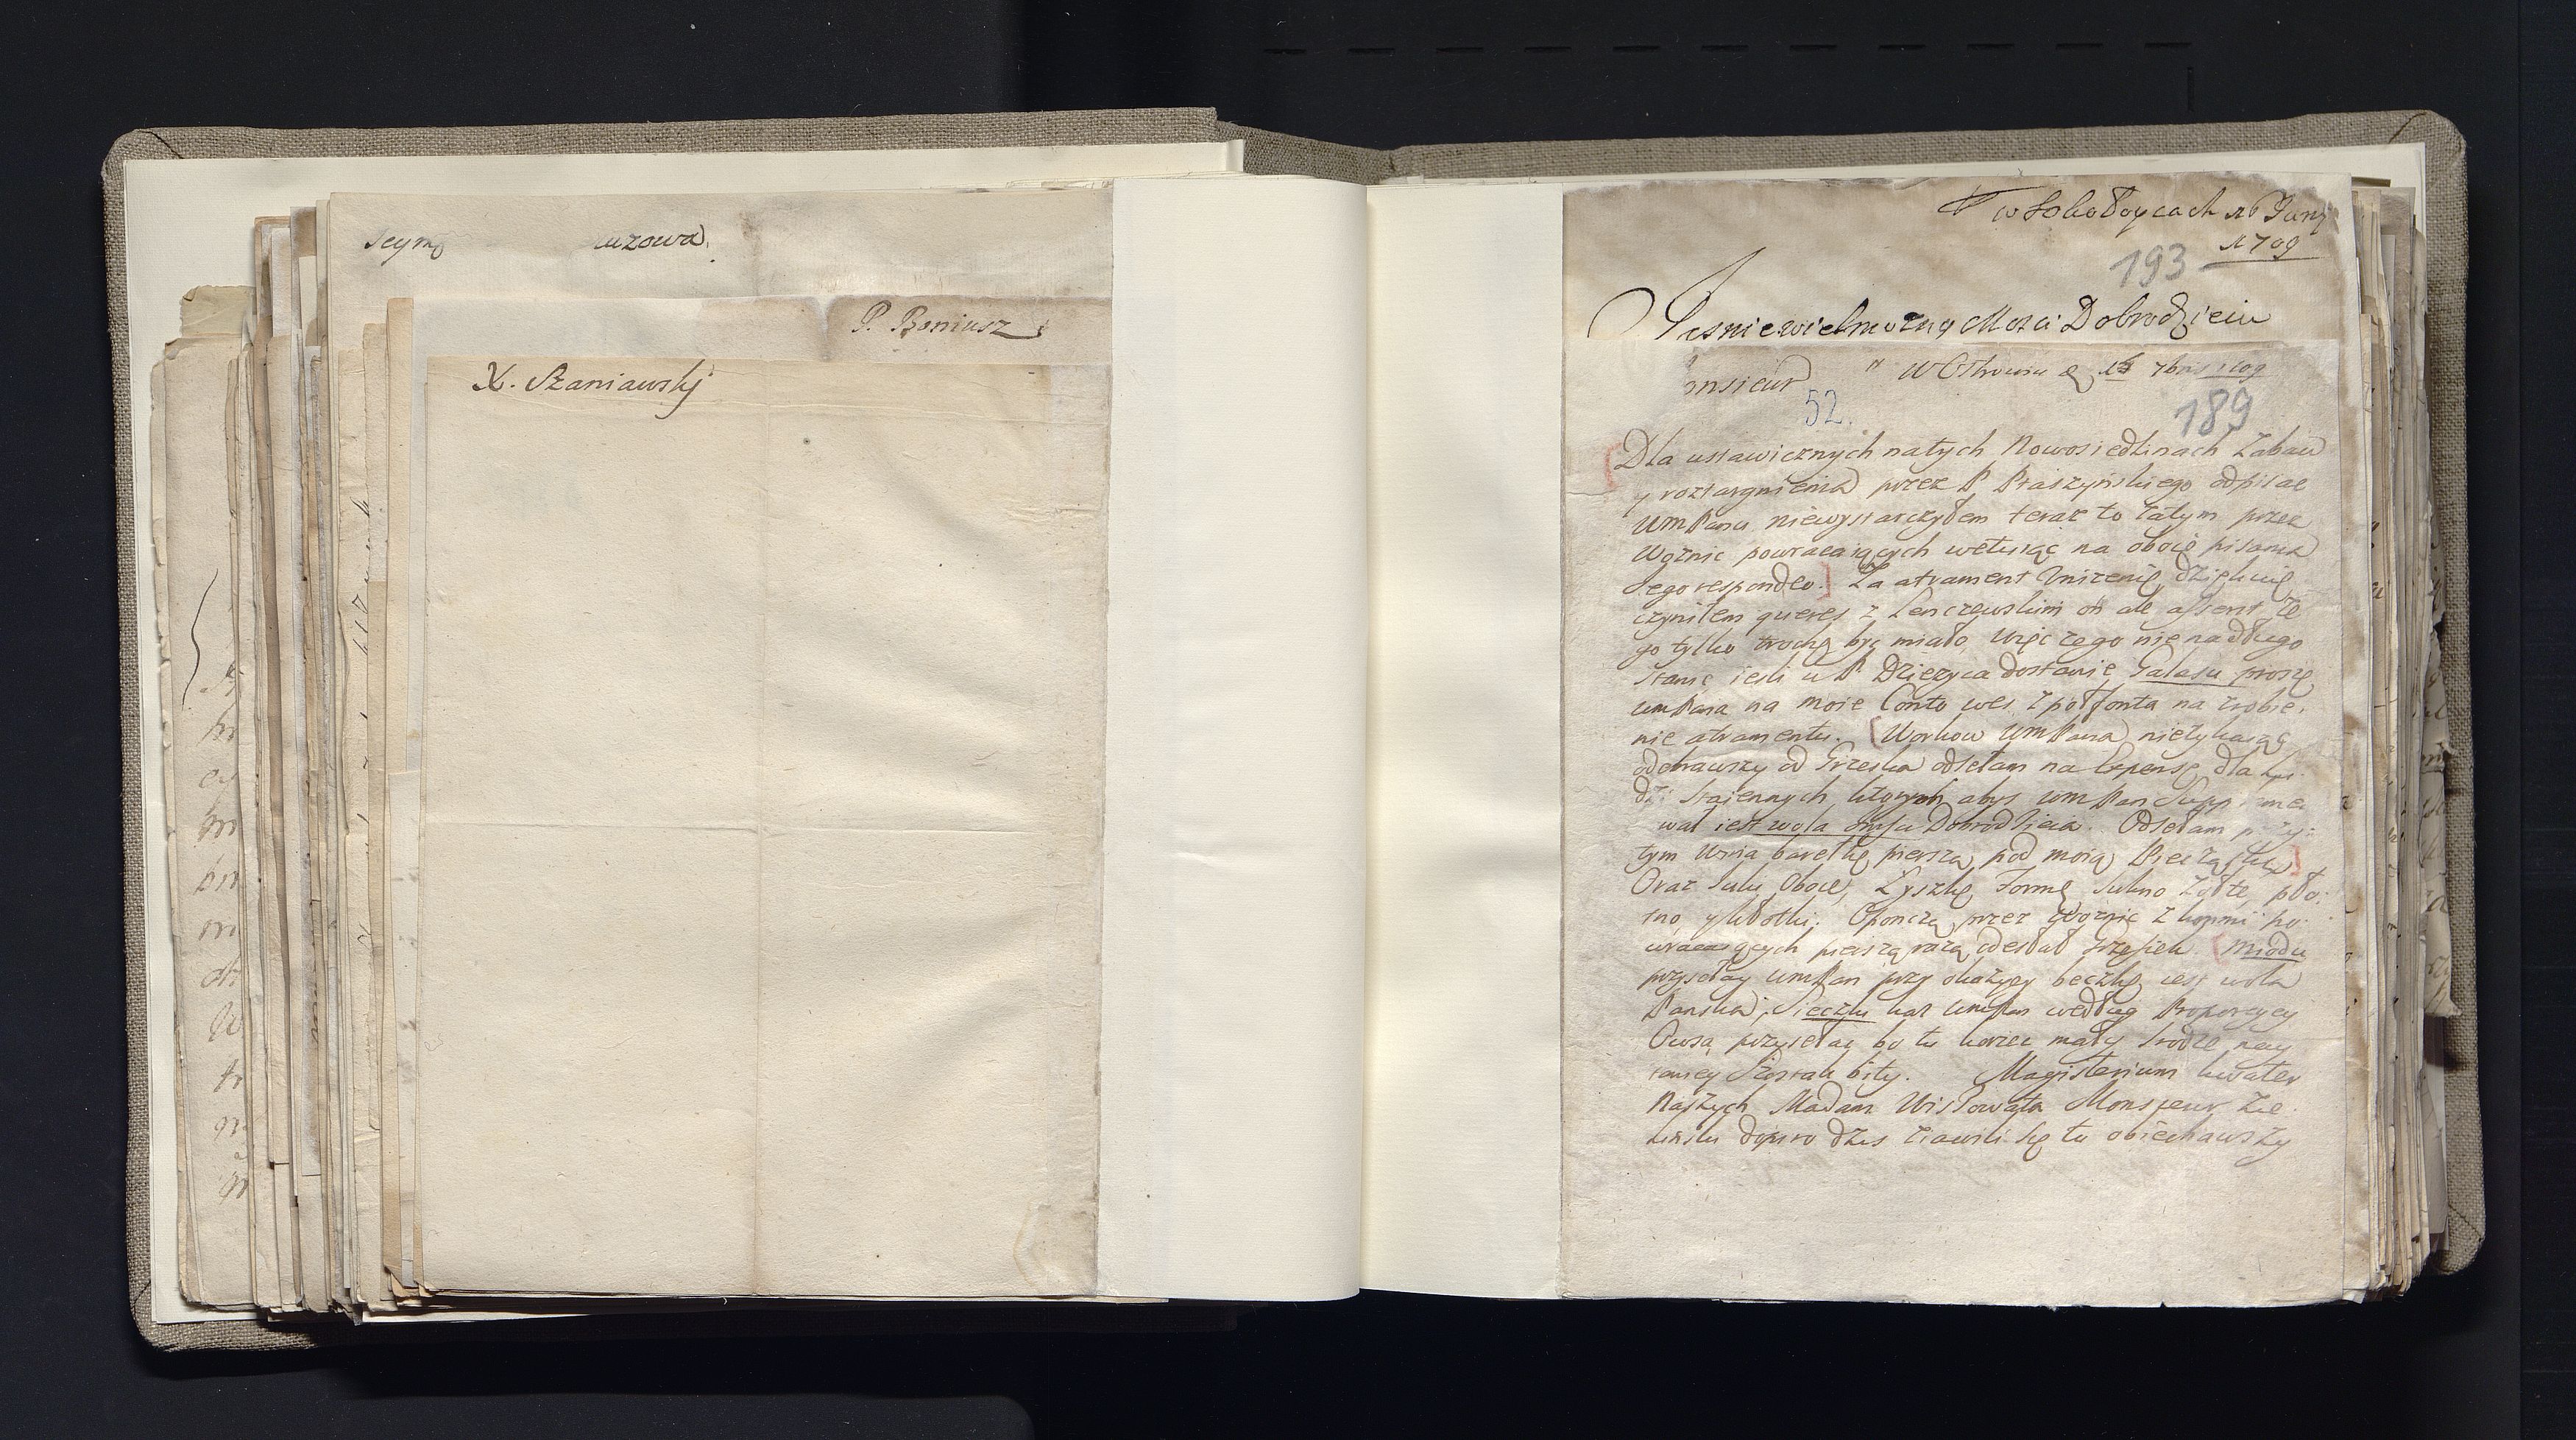 uzowa.
P. Boniusz
X. Szaniawskj
w Sobotoycach 16 Junj
1709
193
Jasniewielmozny Mosci Dobrodzieiu
onsieur W Ostrowiu 7bris 1709
52.
189
Dla ustawicznych na tych Nowosiedlinach Zabaw
y roztargnienia przez P. Staszyńskiego odpisac
WmPanu niewystarczyłem teraz to zatym przez
Woznic powracaiących wetuiąc na oboie pisania
Jego respondeo. Za atrament Unizenie dziękuię
czyniłem z Lenczewskim on ale assent, ze
go tylko trochę byc miało, więc tego nie na długo
stanie iesli u P Dostanie Galasu proszę
WmPana na moie Conto wes z poł fonta na zrobie,
nie atramentu. Workow WmPana nietykaiąc
odebrawszy od Grzeska odsełam na Expensę dla lu
dzi staiennych ktorych abys WmPan
wał iest wola Dobrodzieia. Odsełam
tym Wina baryłkę pierszą pod moią Pieczątką
Oraz Suki Oboie, Łyszkę Formę Sukno zołte, pło:
tno y kłotki. Oponczą przez Woznic z konmi po:
wracaiących pierszą razą odesłał Grzesiek. Miodu
przysełay WmPan przy okazyey beczkę iest wola
Panska; Sieczki kaz WmPan według Proporcyey
Owsa przysełac bo tu korzec mały srodze nay
taniey Szostak bity. Magisterium kwater
Naszych Madam Wisłowata Monsieur Zie
linski dopiro dzis ziawili się tu obiechawszy